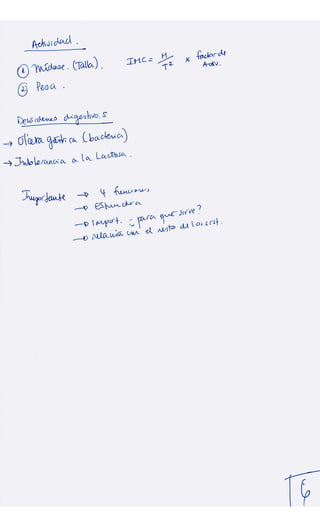 Actividad.
① Midase. (Talla). IMC = M / T² x factor de Activ.
② Pesa.
Desórdenes digestivos
→ Úlcera gástrica (bacteria)
→ Intolerancia a la Lactosa.
Importante → 4 funciones
→ Estructura
→ Import. ¿para qué sirve?
→ relación con el resto de los sist.
T6